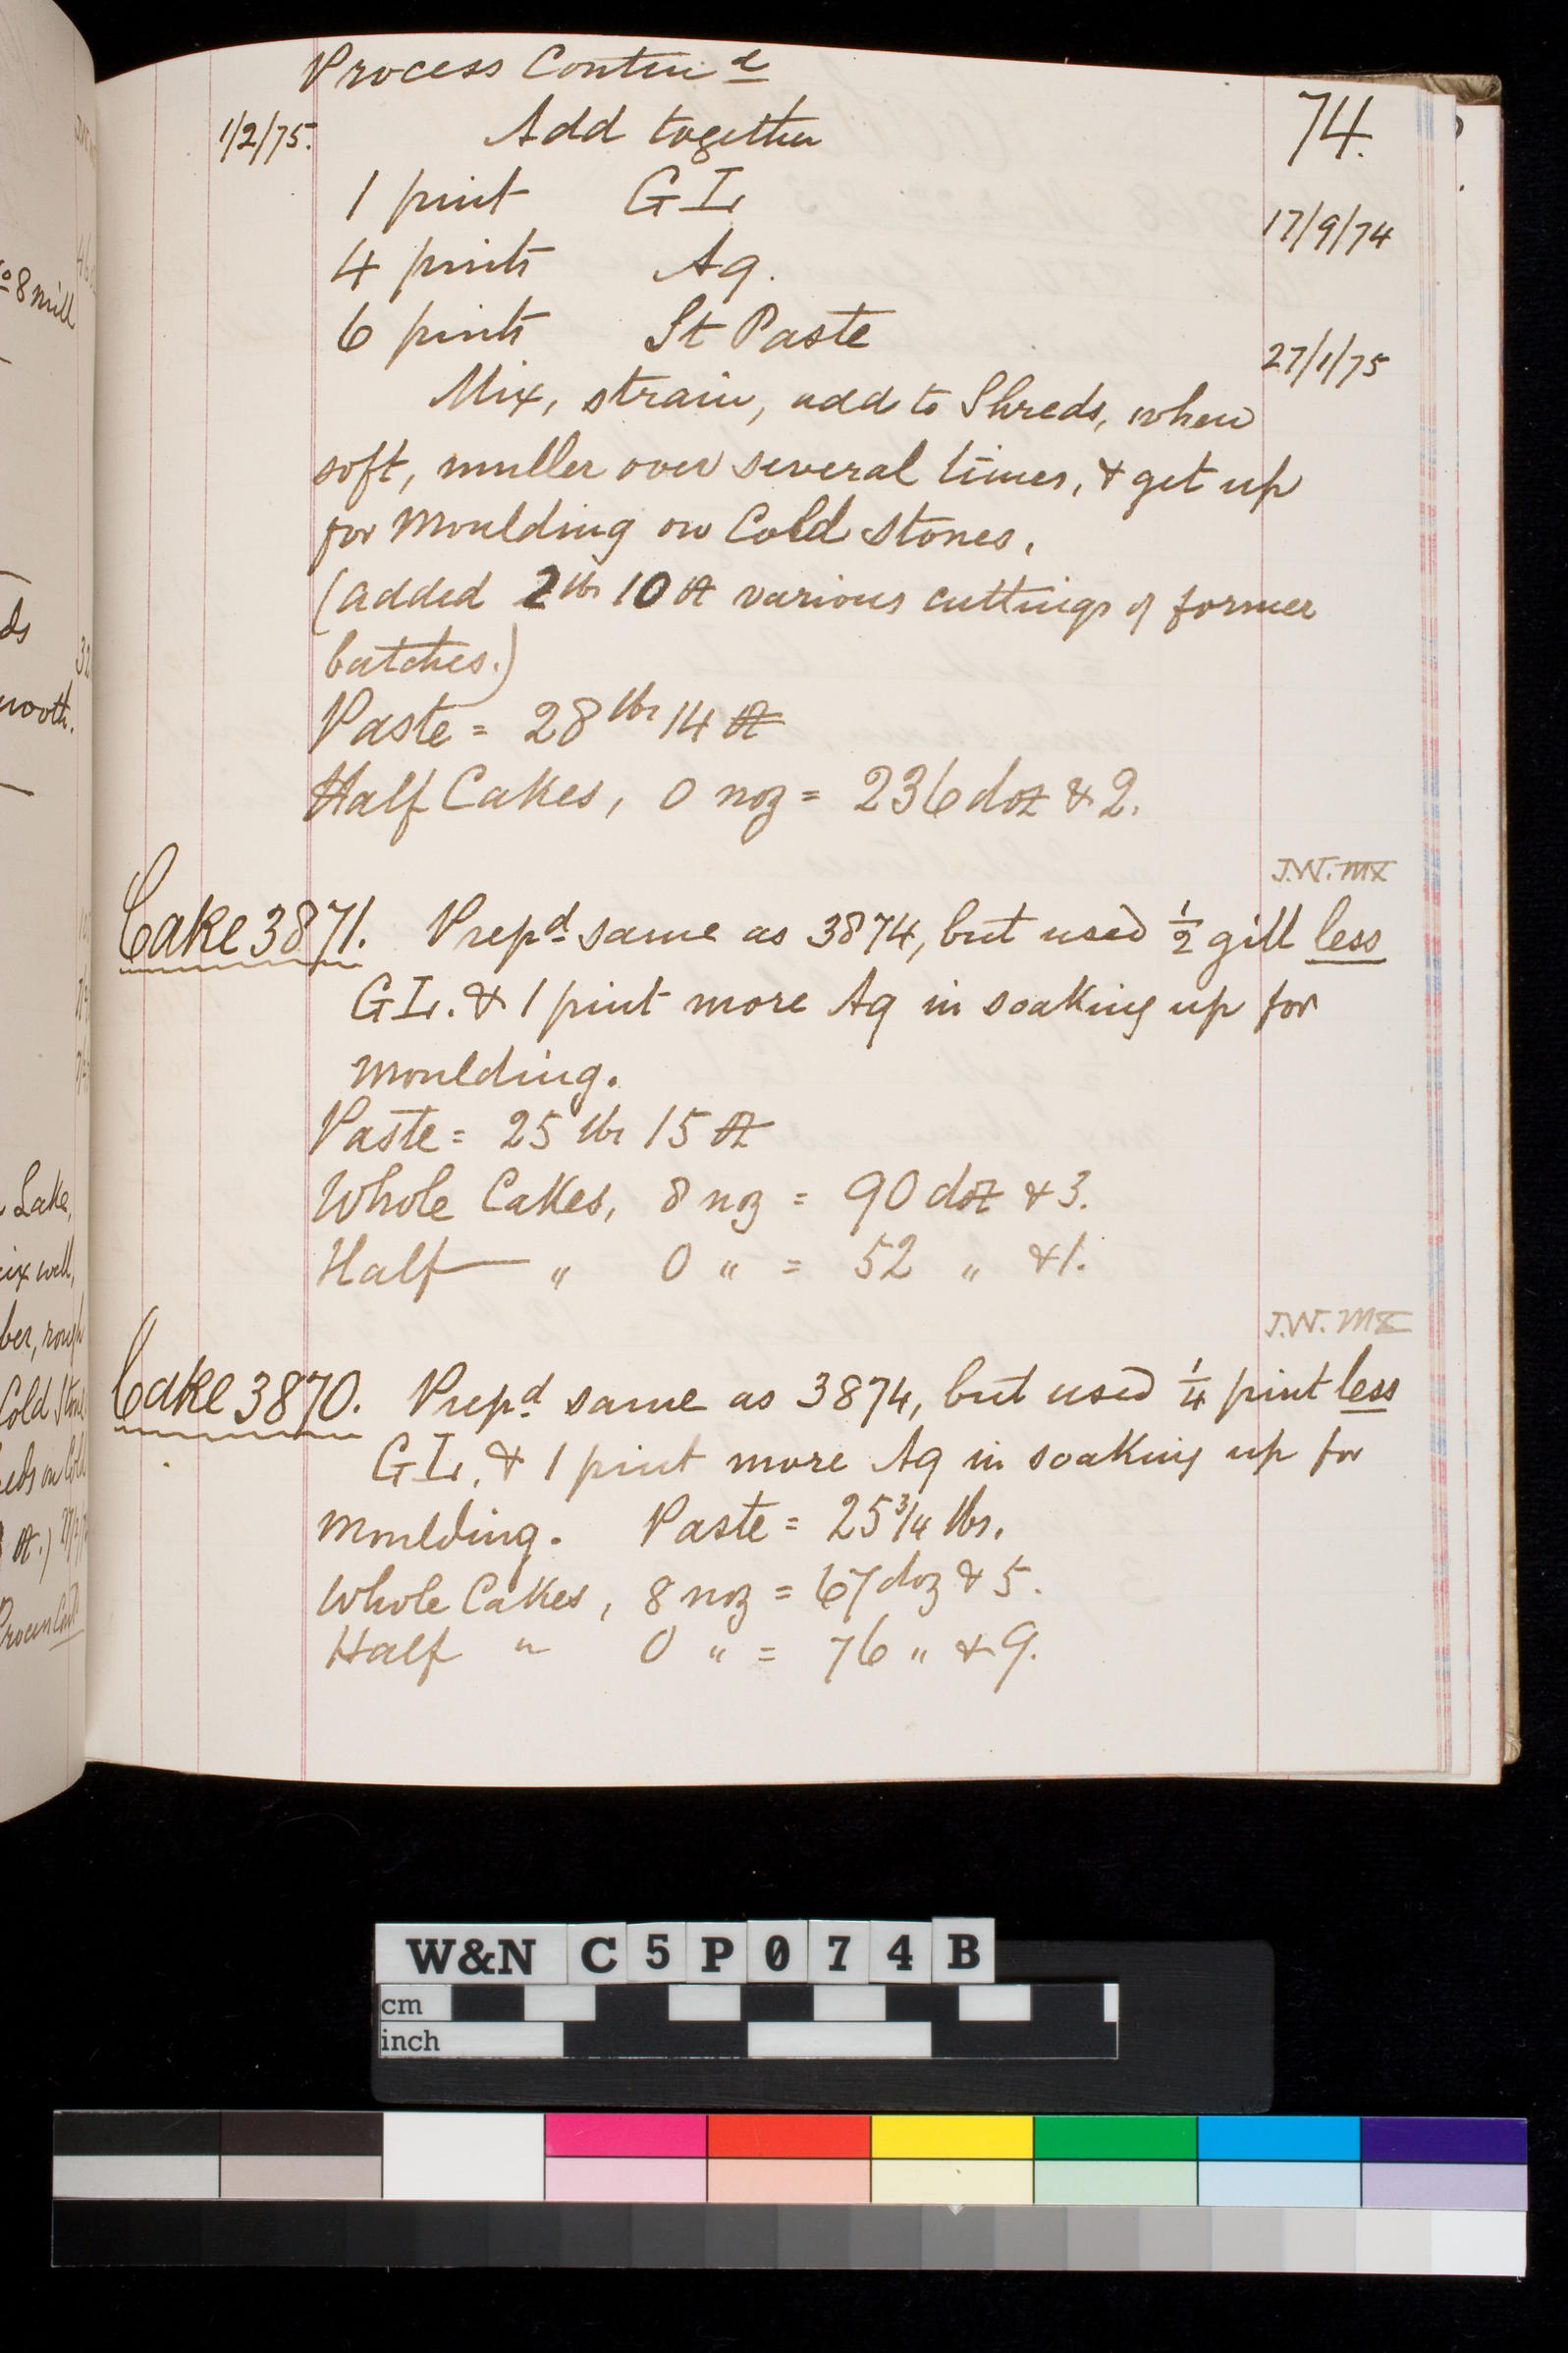 Process Continᵈ
74.
1/2/75. Add together
1 pint GL
17/9/74
4 pints Aq.
6 pints St Paste
27/1/75
Mix, strain, add to Shreds, when
soft, muller over several times, & get up
for Moulding on Cold Stones.
(added 2 lbs 10 oz various cuttings of former
batches.)
Paste = 28 lbs 14 oz
Half Cakes, 0 noz = 236 doz & 2.
J.W.
Cake 3871. Prepᵈ same as 3874, but used ½ gill less
GL. & 1 pint more Aq in soaking up for
Moulding.
Paste = 25 lbs 15 oz
Whole Cakes, 8 noz = 90 doz & 3.
Half — „ 0 „ = 52 „ & 1.
J.W.
Cake 3870. Prepᵈ same as 3874, but used ¼ pint less
GL. & 1 pint more Aq in soaking up for
Moulding. Paste = 25¾ lbs.
Whole Cakes, 8 noz = 67 doz & 5.
Half „ 0 „ = 76 „ & 9.
8 mill
ds
Lake,
mix well,
Cold Stone
W&N C5P074B
cm
inch